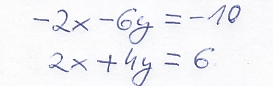 -2x-6y=-10
2x+4y=6